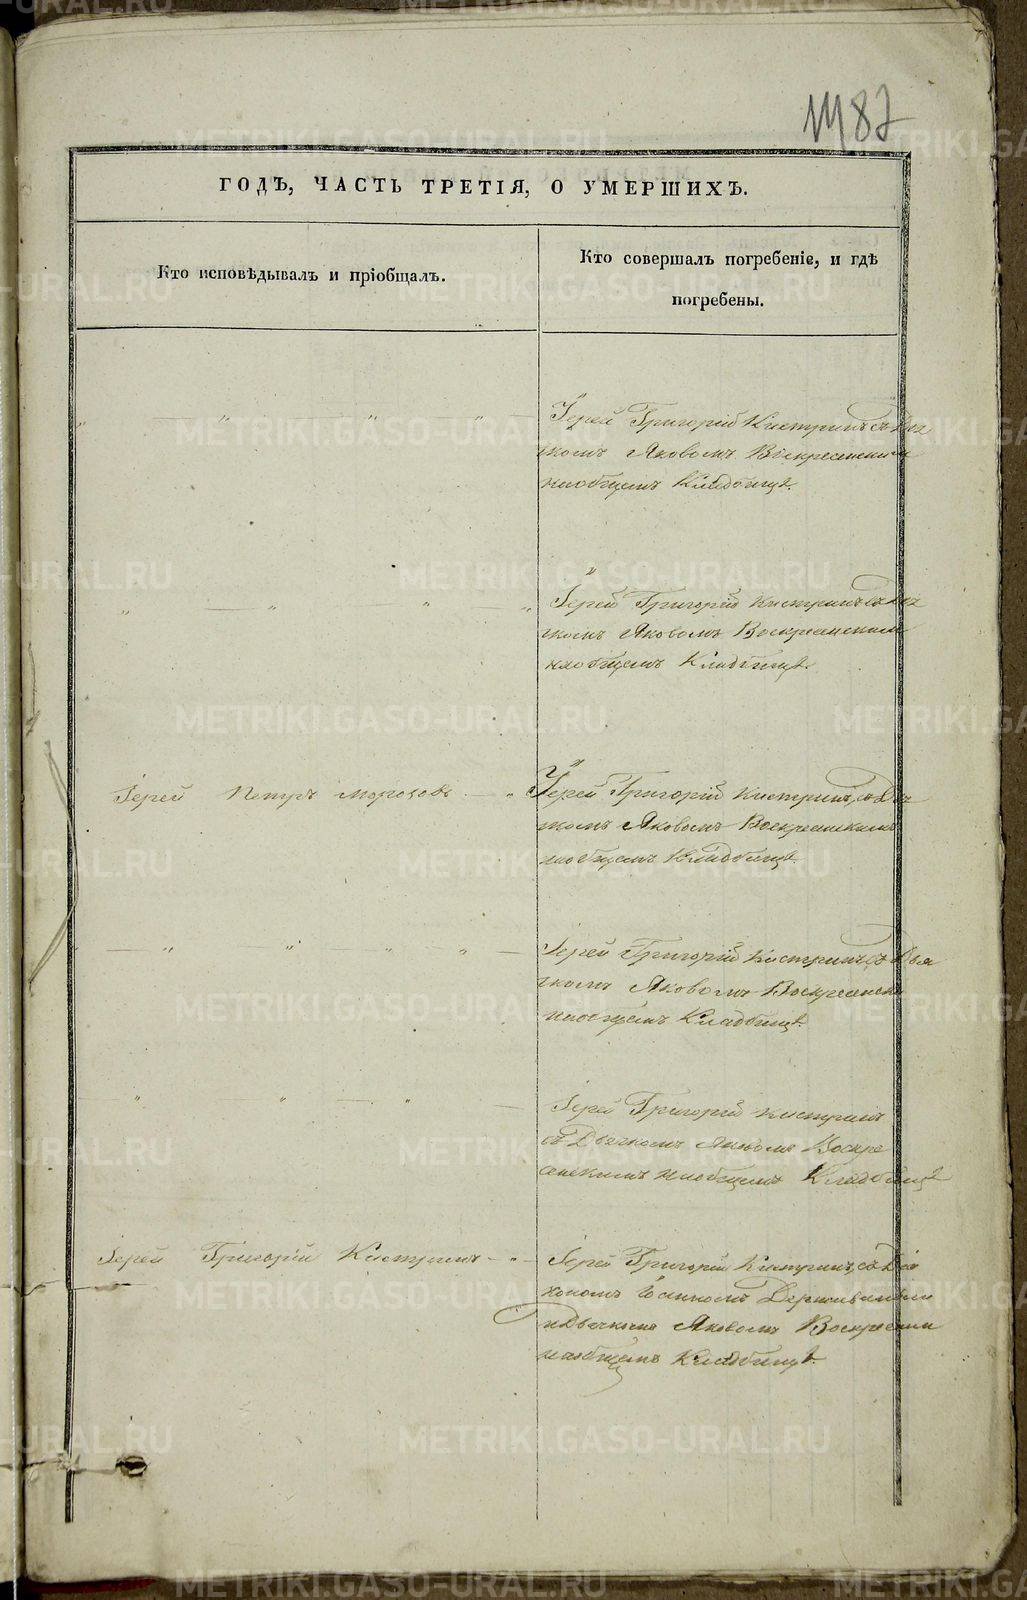 1487
ГОДЪ, ЧАСТЬ ТРЕТІЯ, О УМЕРШИХЪ.
Кто исповѣдывалъ и пріобщалъ.
Кто совершалъ погребеніе, и гдѣ
погребены.
Іерей Григорій Кистринъ съ Дьяч
комъ Яковомъ Воскресенскимъ
на общемъ Кладбищѣ.
Іерей Григорій Кистринъ съ Дьяч
комъ Яковомъ Воскресенскимъ
на общемъ Кладбищѣ.
Іерей Петръ Морозовъ
Іерей Григорій Кистринъ, съ Дьяч
комъ Яковомъ Воскресенскимъ
на общемъ Кладбищѣ.
Іерей Григорій Кистринъ, съ Дья
чкомъ Яковомъ Воскресенски
на общемъ Кладбищѣ.
Іерей Григорій Кистринъ
съ Дьячкомъ Яковомъ Воскре
сенскимъ на общемъ Кладбищѣ
Іерей Григорій Кистринъ
Іерей Григорій Кистринъ, съ Діа
кономъ
и Дьячкомъ Яковомъ Воскресенским
на общемъ Кладбищѣ.
METRIKI.GASO-URAL.RU